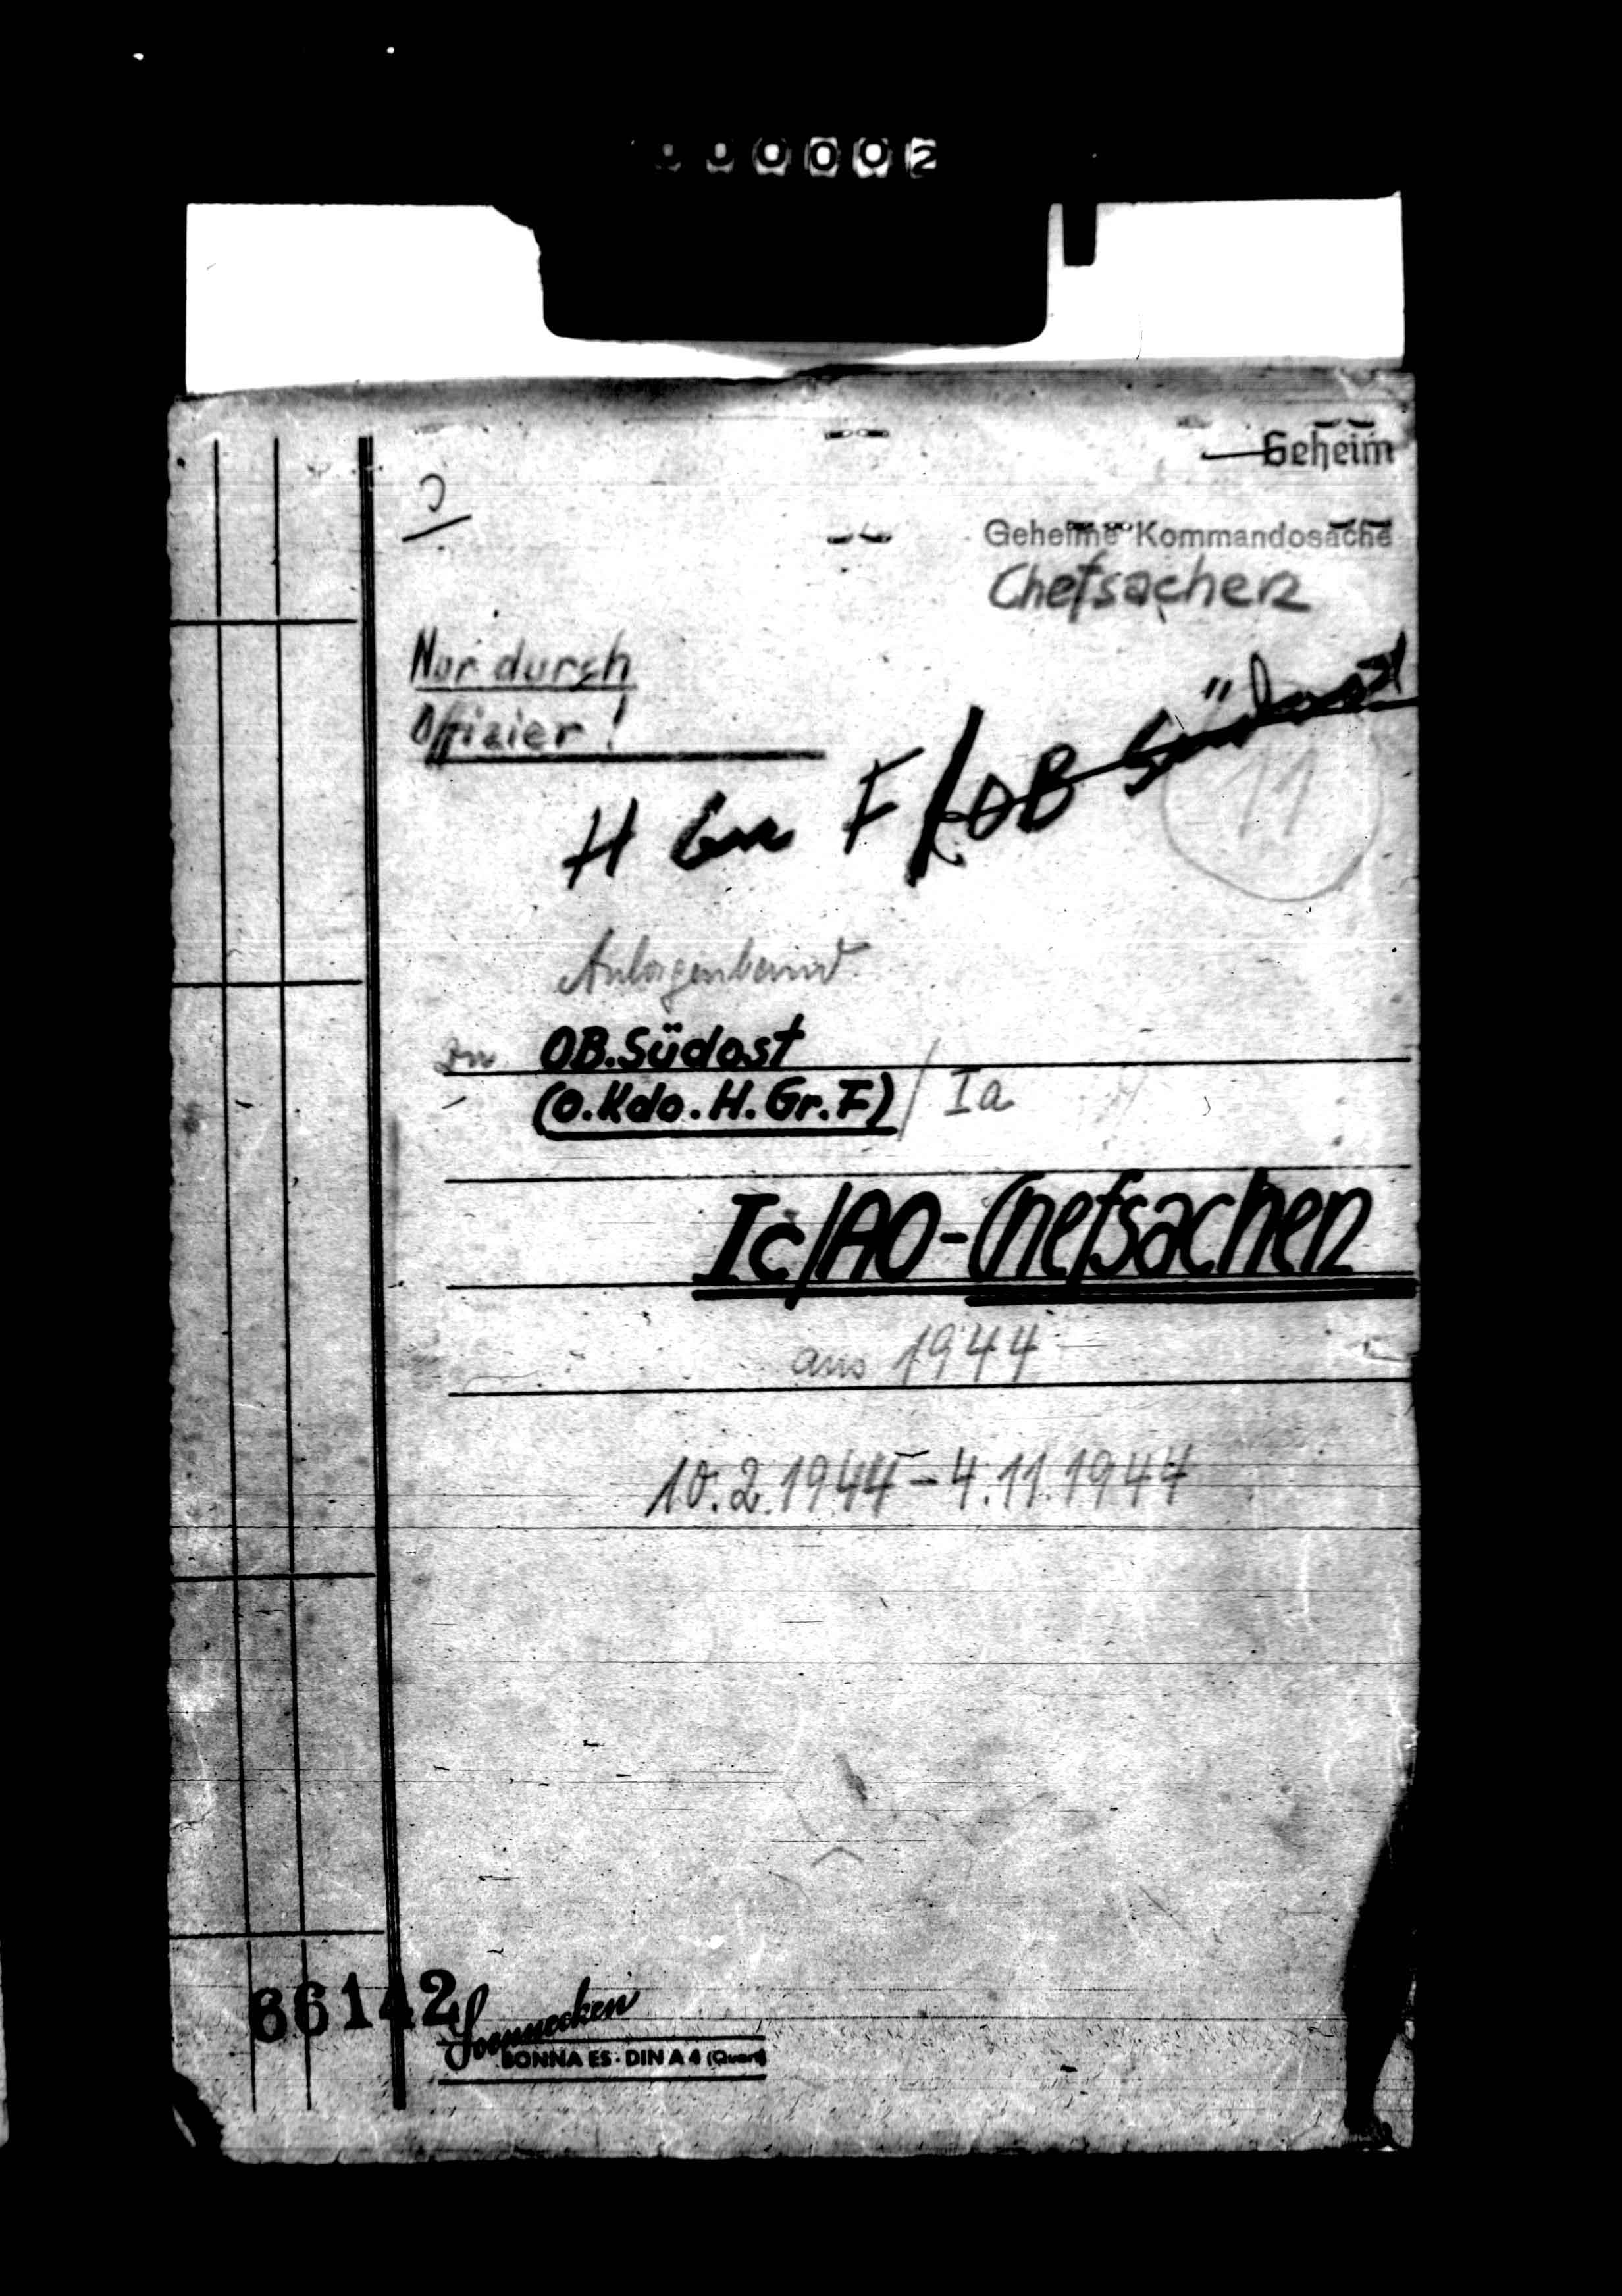 0002
Geheim
Geheime Kommandosache
Chefsachen
Nur durch
Offizier!
H Gr F / OB Südost
11
Anlagenband
zu OB. Südost
(O.Kdo. H. Gr. F) / Ia
Ic/AO-Chefsachen
aus 1944
10.2.1944 - 4.11.1944
66142
Soennecken
BONNA ES · DIN A 4 (Quart)